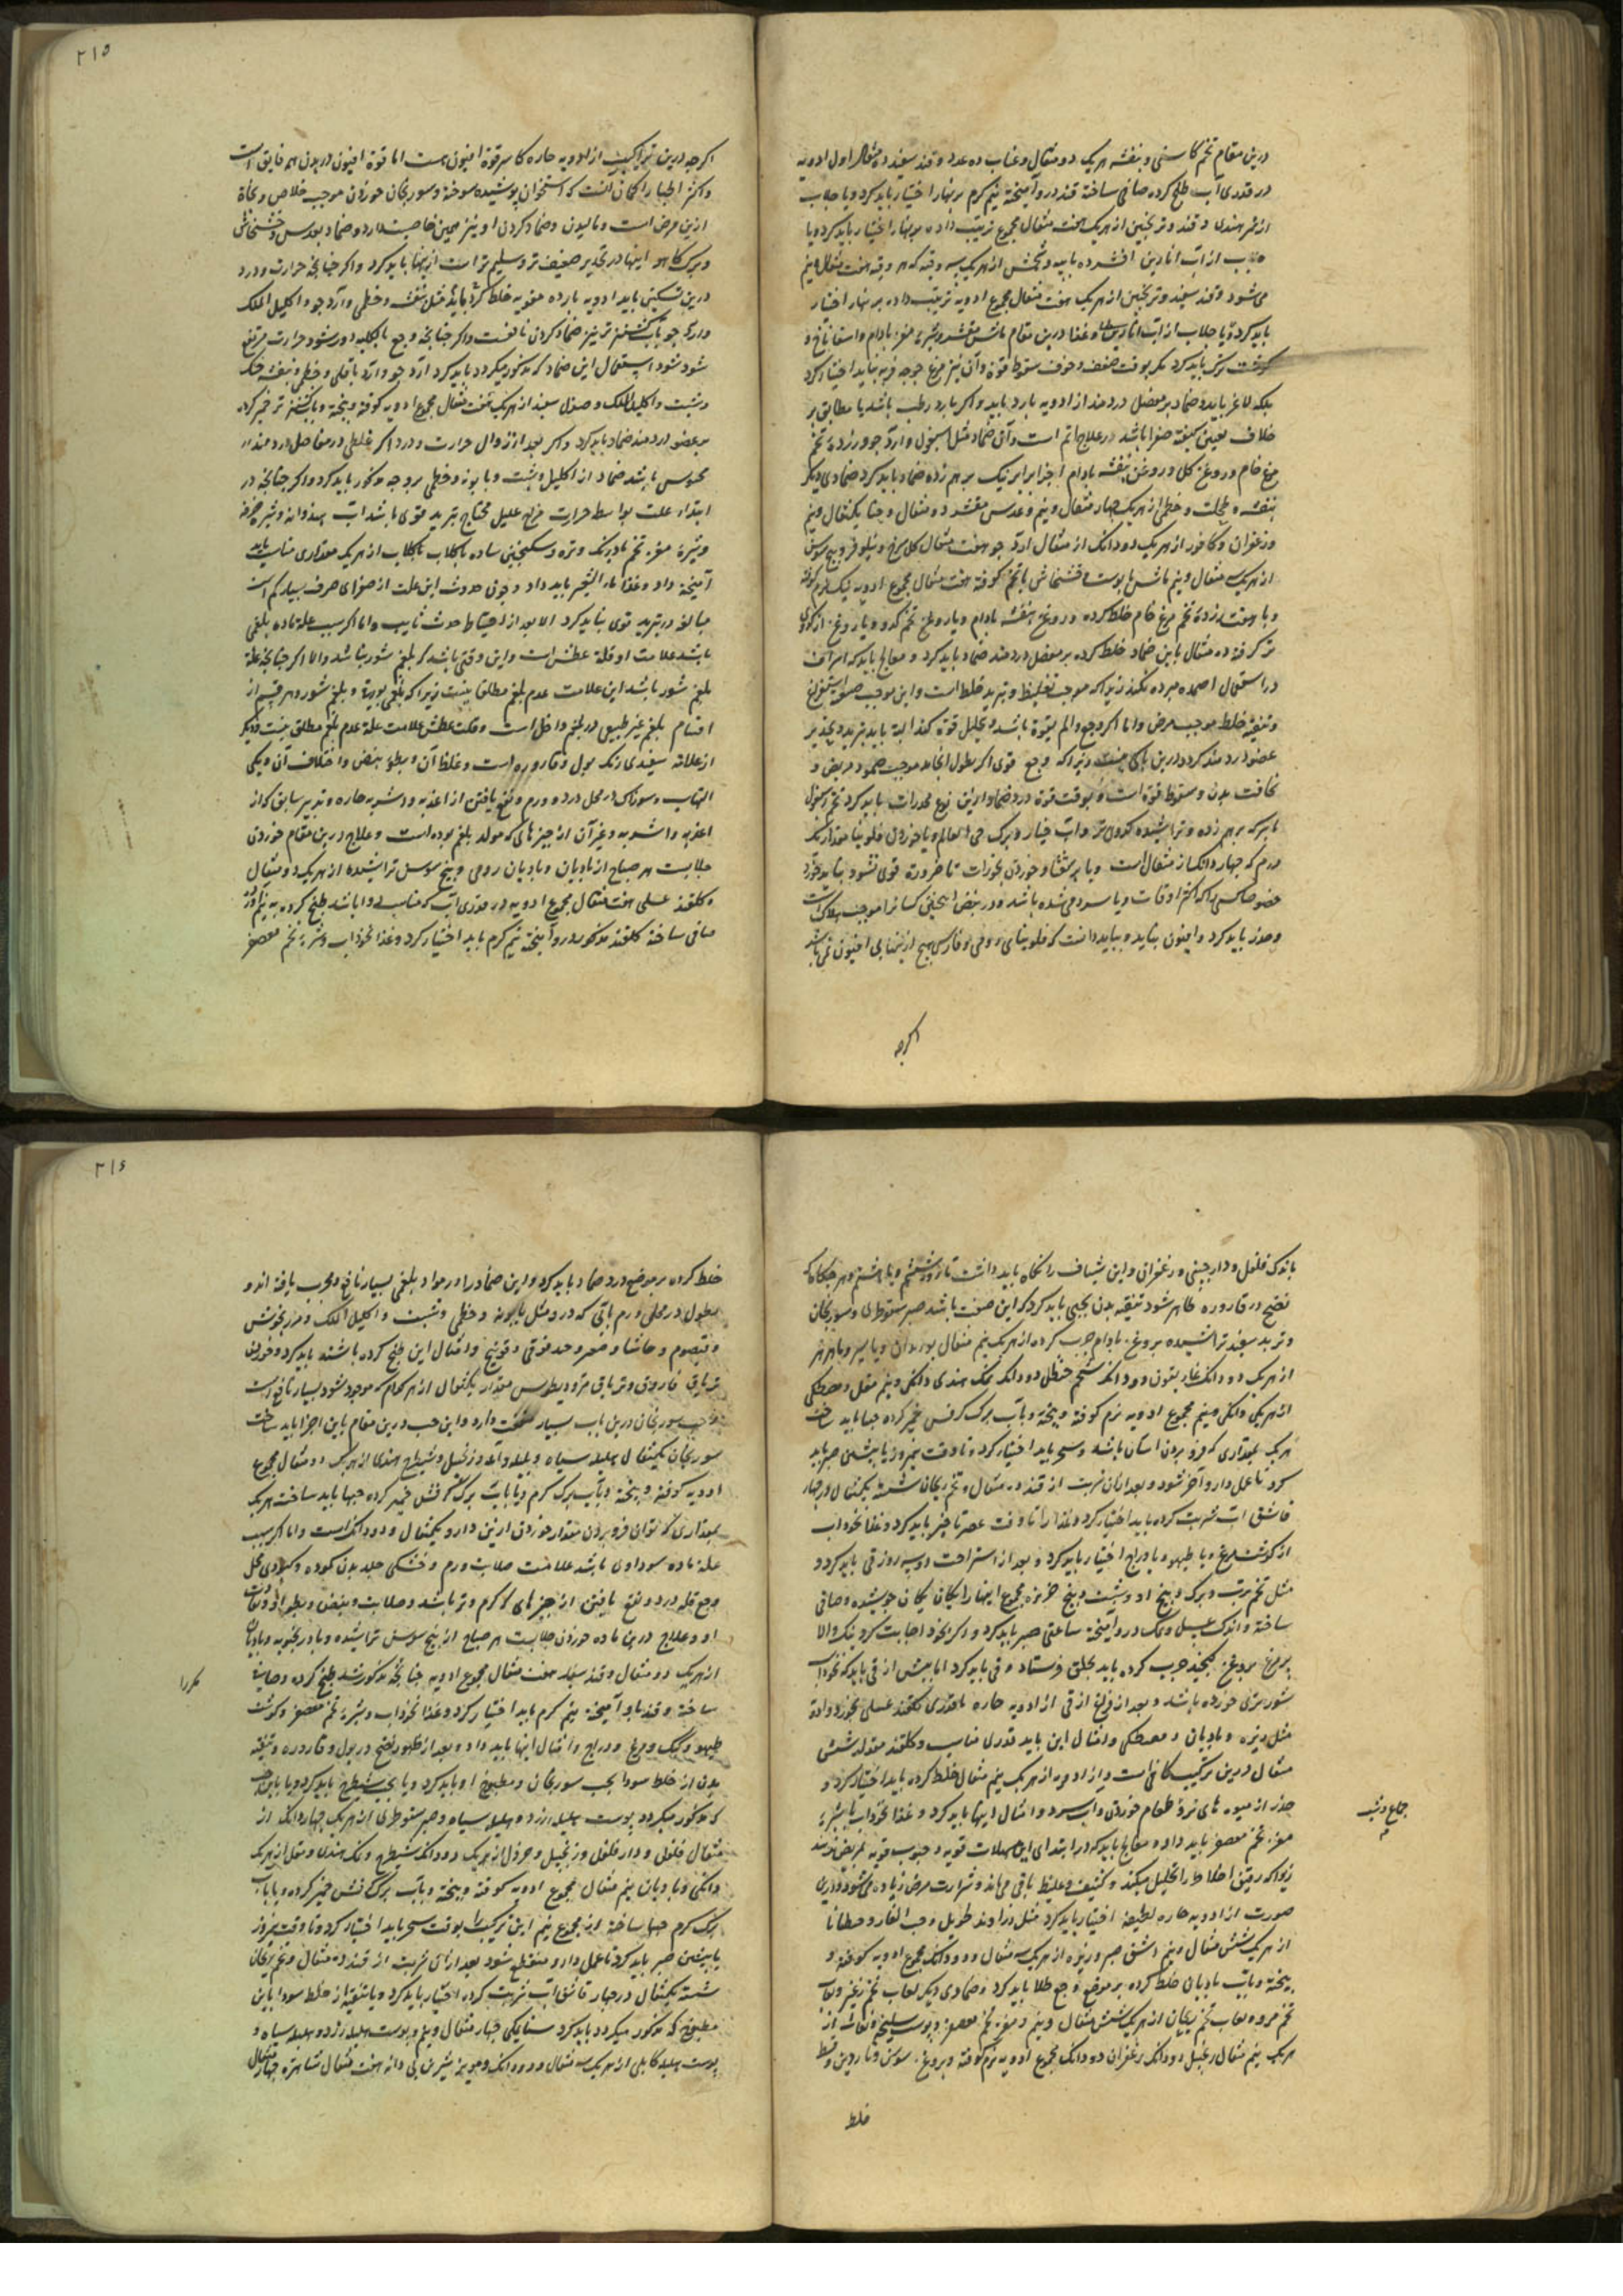 درین مقام تخم کاسنی و بنفشه هریک دو مثقال و عناب ده عدد و قند سفید ده مثقال اول ادویه
در قدری آب طبخ کرده صافی ساخته قند درو آمیخته نیم گرم بربنهار اختیار باید کرد و یا جلاب
از تمر هندی و قند و ترنجبین از هریک هفت مثقال مجموع ترتیب داده بربنهار اختیار باید کرد و یا
جلاب از آب انارین افشرده باپیه و تخمش از هریک سه وقیه که هر وقیه هفت مثقال و نیم
می‌شود و قند سفید و ترنجبین از هریک هفت مثقال مجموع ادویه ترتیب داده بربنهار اختیار
باید کرد و یا جلاب از آب انارین و غذا درین مقام ماش مقشر و شیره مغز بادام و اسفاناخ و
گوشت ترک باید کرد مگر بوقت ضعف و خوف سقوط قوة و آن نیز مرغ جوجه فربه نباید اختیار کرد
بلکه لاغر باید و ضماد بر مفصل دردمند از ادویه بارد باید و اگر بارد رطب باشد یا مطابق بر
خلاف تعیین کیفیة صفرا باشد در علاج اتم است و آن ضماد مثل اسپغول و آرد جو و زرده تخم
مرغ خام و روغن گل و روغن بنفشه بادام اجزا برابر نیک برهم زده ضماد باید کرد ضمادی دیگر
بنفشه و و خطمی از هریک چهار مثقال و نیم و عدس مقشر ده مثقال و حنا یکمثقال و نیم
و زعفران و کافور از هریک دو دانگ از مثقال آرد جو هفت مثقال گل سرخ و نیلوفر و بیخ سوسن
از هریک سه مثقال و نیم باشد با پوست خشخاش با تخم کوفته هفت مثقال مجموع ادویه نیک نرم کوفته
و با هفت زرده تخم مرغ خام خلط کرده و روغن بنفشه بادام و یا روغن تخم کدو و یا روغن از کدوی
تر گرفته ده مثقال باین ضماد خلط کرده بر مفصل دردمند ضماد باید کرد و معالج باید که اسراف
در استعمال اضمده مبرده نکند زیراکه موجب تغلیظ و تبرید خلط است و این موجب
و تنقیه خلط موجب مرض و اما اگر وجع و الم بقوة باشد و تحلیل قوة کند البته باید بتبرید و تخدیر
عضو دردمند کرد و درین باکی نیست زیراکه وجع قوی اگر بطول انجامد موجب مریض و
نحافت بدن و سقوط قوة است و بوقت قوة درد ضماد از این نوع مخدرات باید کرد تخم اسپغول
با سرکه برهم زده و تراشیده کدوی تر و آب خیار و برک حی العالم و یا خوردن فلونیا مقدار یک
درم که چهار دانک از مثقال است و یا و خوردن مخدرات تا ضرورة قوی نشود نباید خورد
خصوصا کسی را که اکثر اوقات و یا سرد می شده باشد و در بعض اینچنین کسانرا موجب هلاک است
و حذر باید کرد و افیون بباید و بباید دانست که فلونیای رومی و فارسی هیچ از اینها بی افیون نمی باشد
اگرچه
۲۱۵
اگرچه درین تراکیب از ادویه حاره کاسر قوة افیون هست اما قوة افیون در بدن همه فایق است
و اکثر اطبا را گمان آنست که استخوان پوشیده سوخته و سورنجان خوردن موجب خلاص و نجاة
ازین مرض است و مالیدن و ضماد کردن او نیز همین خاصیت دارد و ضماد بعدس و خشخاش
و برک کاهو اینها در تخدیر ضعیف تر و سلیم تر است ازینها باید کرد و اگر چنانچه حرارت و درد
درین تسکین یابد ادویه بارده مقویه خلط کرده باید مثل بنفشه و خطمی و آرد جو و اکلیل الملک
و آرد جو بآب گشنیز تر نیز ضماد کردن نافعست و اگر چنانچه وجع بالکلیه دور شود حرارت مرتفع
شود شود استعمال این ضماد که مذکور میگردد باید کرد آرد جو و آرد باقلی و خطمی و بنفشه خشک
و شبت و اکلیل الملک و صندل سفید از هریک هفت مثقال مجموع ادویه کوفته و بیخته و بآب گشنیز تر خمیر کرده
بر عضو دردمند ضماد باید کرد و اگر بعد از زوال حرارت و درد اگر غلظی در مفاصل دردمند
محسوس باشد ضماد از اکلیل و شبت و بابونه و خطمی بروجه مذکور باید کرد و اگر چنانچه در
ابتداء علت بواسطه حرارت مزاج علیل محتاج بتبرید قوی باشد آب هندوانه و شیره خرفه
و شیره مغز تخم بادرنک و تره و سکنجبین ساده با گلاب از هریک مقداری مناسب باید
آمیخته داد و غذا ماء الشعیر باید داد و چون حدوث این علت از صفرای صرف بسیار کم است
مبالغه در تبرید قوی نباید کرد الا بعد از احتیاط و اما اگر سبب علة ماده بلغمی
باشد علامت او قلة عطش است و این وقتی باشد که بلغم شور نباشد و الا اگر چنانچه علة
بلغم شور باشد این علامت عدم بلغم مطلقا نیست زیراکه بلغمی بورقیة و بلغم شور و هر قسم از
اقسام بلغم غیر طبیعی در بلغم داخل است و قلت عطش علامت علة عدم بلغم مطلق نیست و دیگر
از علامة سفیدی رنک بول و قاروره است و غلظ آن و بطوء نبض و اختلاف آن و یکی
التهاب و سوزناک در محل درد و ورم و نفع یافتن از اغذیه و اشربه حاره و تدبیر سابق که از
اغذیه و اشربه و غیر آن از چیزهای که مولد بلغم بوده است و علاج درین مقام خوردن
جلابست هر صباح از بادیان و بادیان رومی و بیخ سوسن تراشیده از هریک دو مثقال
و گلقند عسلی هفت مثقال مجموع ادویه در قدری آب که مناسب دوا باشد طبخ کرده
صافی ساخته گلقند مذکور درو آمیخته نیم گرم باید اختیار کرد و غذا نخوداب و شیره تخم معصفر
باندک فلفل و دارچینی و زعفران و این شیاف را نگاه باید داشت تا روز ششم و یا هشتم و هرگاه که
نضج در قاروره ظاهر شود تنقیه بدن بحبی باید کرد که این صفت باشد صبر سقوطری و سورنجان
و تربد سفید تراشیده بروغن بادام چرب کرده از هریک نیم مثقال بوزیدان و
از هریک دو دانک غاریقون دو دانک شحم حنظل دو دانک نمک هندی دانکی و نیم مقل و مصطکی
از هریکی دانکی و نیم مجموع ادویه نرم کوفته و بیخته و بآب برک کرفس خمیر کرده حبها باید ساخت
هریک بمقداری که فرو بردن آسان باشد و سحر باید اختیار کرده تا وقت نیمروز یا پیشین صبر باید
کرد تا عمل دارو آخر شود و بعد ازان شربت از قند ده مثقال و تخم ریحان شسته یکمثقال در چهار
قاشق آب شربت کرده باید اختیار کرد و غذا را تا وقت عصر تاخیر باید کرد و غذا نخوداب
از گوشت مرغ و یا طیهو و یا دراج اختیار باید کرد و بعد از استراحت دو سه روز قی باید کرد و
مثل تخم ترب و برک و بیخ او و شبت و بیخ خربزه مجموع اینها را یکان یکان جوشیده و صافی
ساخته و اندک عسل و نمک درو آمیخته ساعتی صبر باید کرد و اگر بخود اجابت کرد نیک والا
پر مرغ بروغن کنجد چرب کرده باید بحلق فرستاد و قی باید کرد اما پیش از قی باید که نخوداب
شورتری خورده باشد و بعد از فراغ از قی از ادویه حاره باقدری گلقند عسلی بخورد داده
مثل زیره و بادیان و مصطکی و امثال این باید قدری مناسب و گلقند مقدار شش
مثقال درین ترکیب کافی است و از ادویه از هریک نیم مثقال خلط کرده باید اختیار کرد و
حذر از میوه های تر و طعام خوردن و آب سرد و امثال اینها باید کرد و غذا نخوداب با شیره
مغز تخم معصفر باید داد و معالج باید که در ابتدای این مسهلات قویه و حبوب قویه بمریض ندهد
زیراکه رقیق اخلاط را تحلیل میکند و کثیف و غلیظ باقی می‌ماند و شرارت مرض زیاده می‌شود و درین
صورت از ادویه حاره لطیفه اختیار باید کرد مثل زراوند طویل و حب الغار و جنطیانا
از هریک شش مثقال و نیم اشق صبر زیره از هریک سه مثقال و دو دانک مجموع ادویه کوفته و
بیخته و بآب بادیان خلط کرده بر موضع وجع طلا باید کرد و ضمادی دیگر لعاب تخم
تخم مرو و لعاب تخم ریحان از هریک شش مثقال و نیم و مغز تخم معصفر و پوست سلیخه از
هریک نیم مثقال زنجبیل دو دانک زعفران دو دانک مجموع ادویه نرم کوفته و بروغن سوسن و ناردین و قسط
خلط
۲۱۶
خلط کرده بر موضع درد ضماد باید کرد و این ضماد را در مواد بلغمی بسیار نافع و مجرب یافته اند و
بطول در محل ورم بآبی که درو مثل بابونه و خطمی و شبت و اکلیل الملک و مرزنجوش
و قیصوم و حاشا و صعتر و و امثال این طبخ کرده باشند باید کرد و خوردن
تریاق فاروق و تریاق مثرودیطوس مقدار یکمثقال از هرکدام که موجود شود بسیار نافع است
و حب سورنجان درین باب بسیار منفعت دارد و این حب درین مقام باین اجزا باید ساخت
سورنجان یکمثقال هلیله سیاه و بلیله و آمله و زنجبیل و شیطرج هندی از هریک دو مثقال مجموع
ادویه کوفته و بیخته و بآب برک کرم و یا بآب برک کرفس خمیر کرده حبها باید ساخت هریک
بمقداری که توان فرو بردن مقدار خوردن ازین دارو یکمثقال و دو دانک است و اما اگر سبب
علة ماده سوداوی باشد علامت صلابت ورم و خشکی جلد بدن کموده و محل
وجع قلة درد و نفع یافتن از چیزهای که گرم و تر باشد و صلابت و نبض و بطوء او
او و علاج درین ماده خوردن جلابست هر صباح از بیخ سوسن تراشیده و بادرنجبویه و بادیان
از هریک دو مثقال و قند سفید هفت مثقال مجموع ادویه چنانچه مذکور شد طبخ کرده و صافی
ساخته و قند باو آمیخته نیم گرم باید اختیار کرد و غذا نخوداب و شیره تخم معصفر و گوشت
طیهو و کبک و مرغ و دراج و امثال اینها باید داد و بعد از ظهور نضج در بول و قاروره و تنقیه
بدن از خلط سودا بحب سورنجان و مطبوخ او باید کرد و یا بحب شیطرج باید کرد و یا باین حب
که مذکور میگردد پوست هلیله زرد و هلیله سیاه و صبر سقوطری از هریک چهار دانک از
مثقال فلفل و دار فلفل و زنجبیل و خردل از هریک دو دانک شیطرج و نمک هندی و مقل از هریک
دانکی و بادیان نیم مثقال مجموع ادویه کوفته و بیخته و بآب برک کرفس خمیر کرده و یا بآب
برک کرم حبها ساخته از مجموع نیم این ترکیب را بوقت سحر باید اختیار کرد و تا وقت نیمروز
یا پیشین صبر باید کرد تا عمل دارو منقطع شود بعد ازان شربت از قند ده مثقال و تخم ریحان
شسته یکمثقال در چهار قاشق آب شربت کرده اختیار باید کرد و یا تنقیه از خلط سودا باین
مطبوخ که مذکور میگردد باید کرد سنا مکی چهار مثقال و نیم و پوست هلیله زرد و هلیله سیاه و
پوست هلیله کابلی از هریک سه مثقال و دو دانک و مویز شیرین بی دانه هفت مثقال شاهتره چهار مثقال